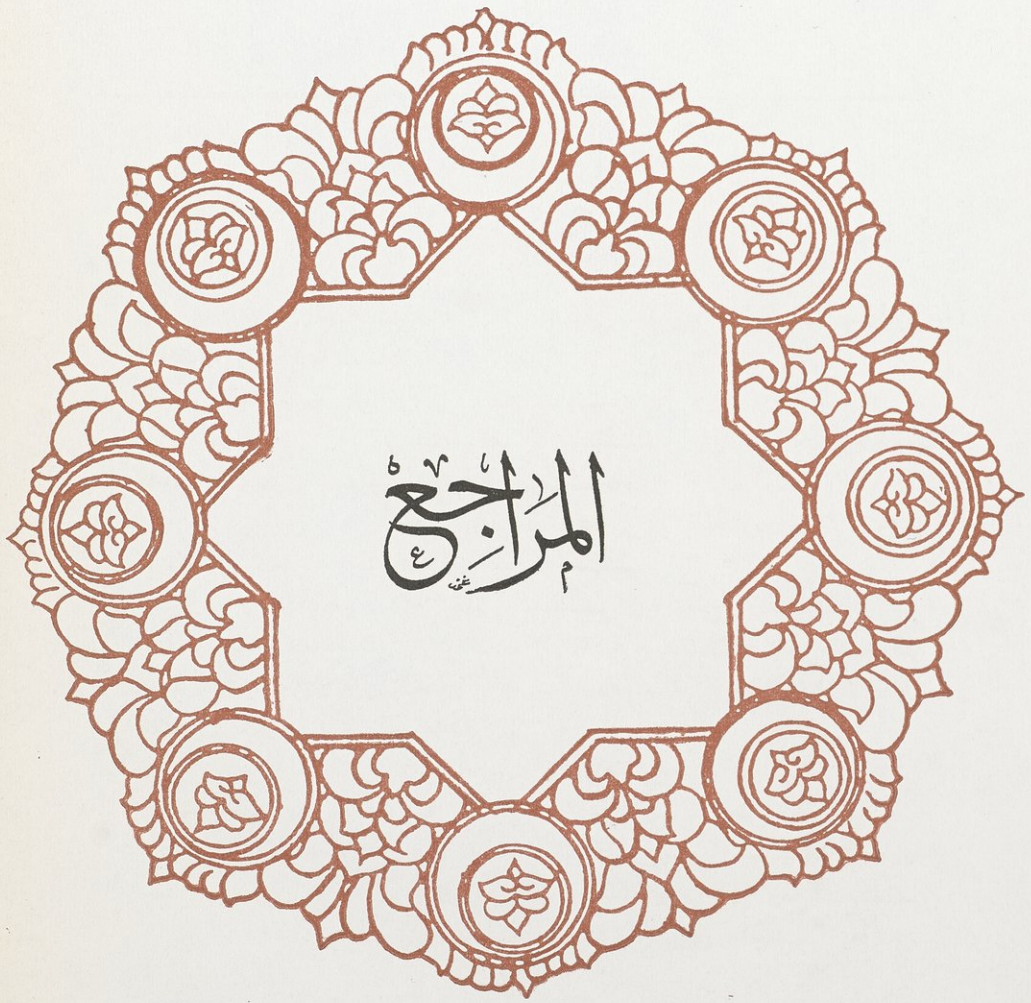 المَراجع